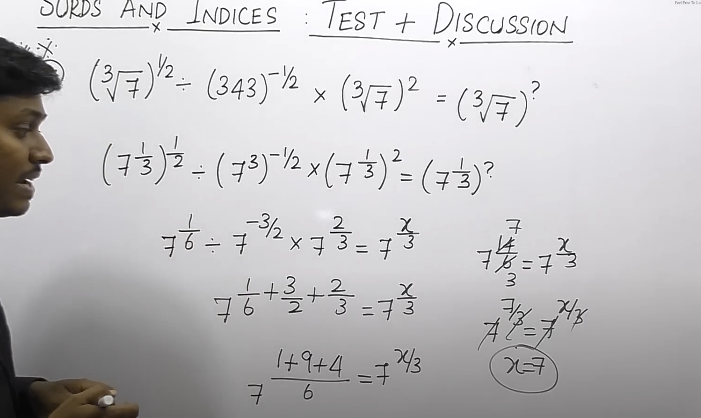 SURDS AND INDICES : TEST + DISCUSSION
(∛7)^1/2 ÷ (343)^-1/2 × (∛7)^2 = (∛7)^?
(7^1/3)^1/2 ÷ (7^3)^-1/2 × (7^1/3)^2 = (7^1/3)^?
7^1/6 ÷ 7^-3/2 × 7^2/3 = 7^x/3
7^1/6+3/2+2/3 = 7^x/3
7^(1+9+4)/6 = 7^x/3
7
7^14/6 = 7^x/3
3
7^7/3 = 7^x/3
x=7